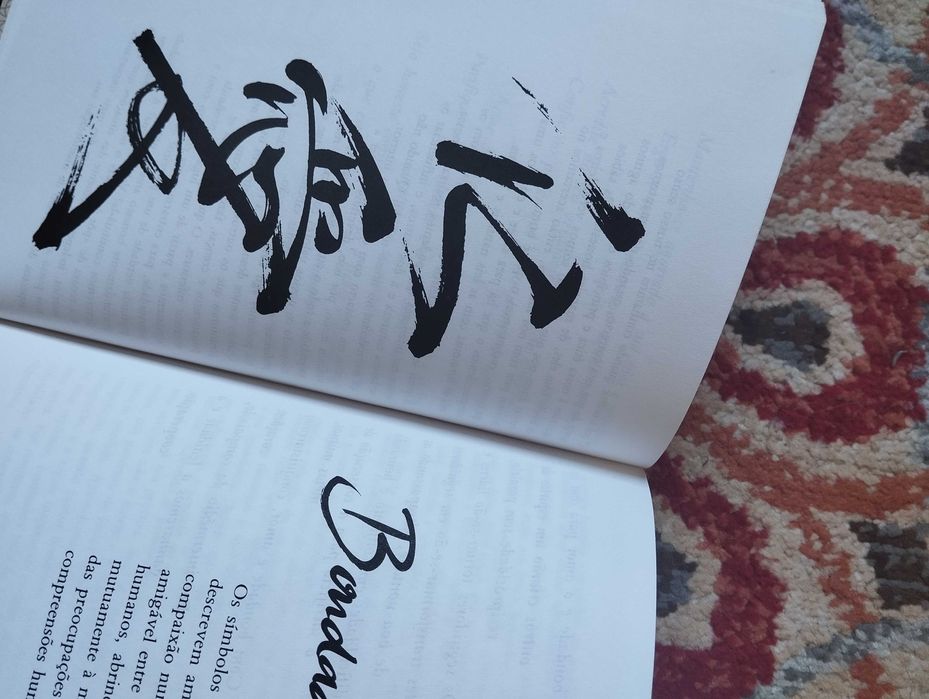 愛
Bondad
Os símbolos
descrevem am
compaixão nu
amigável entre
humanos, abrin
mutuamente à m
das preocupações
compreensões hu